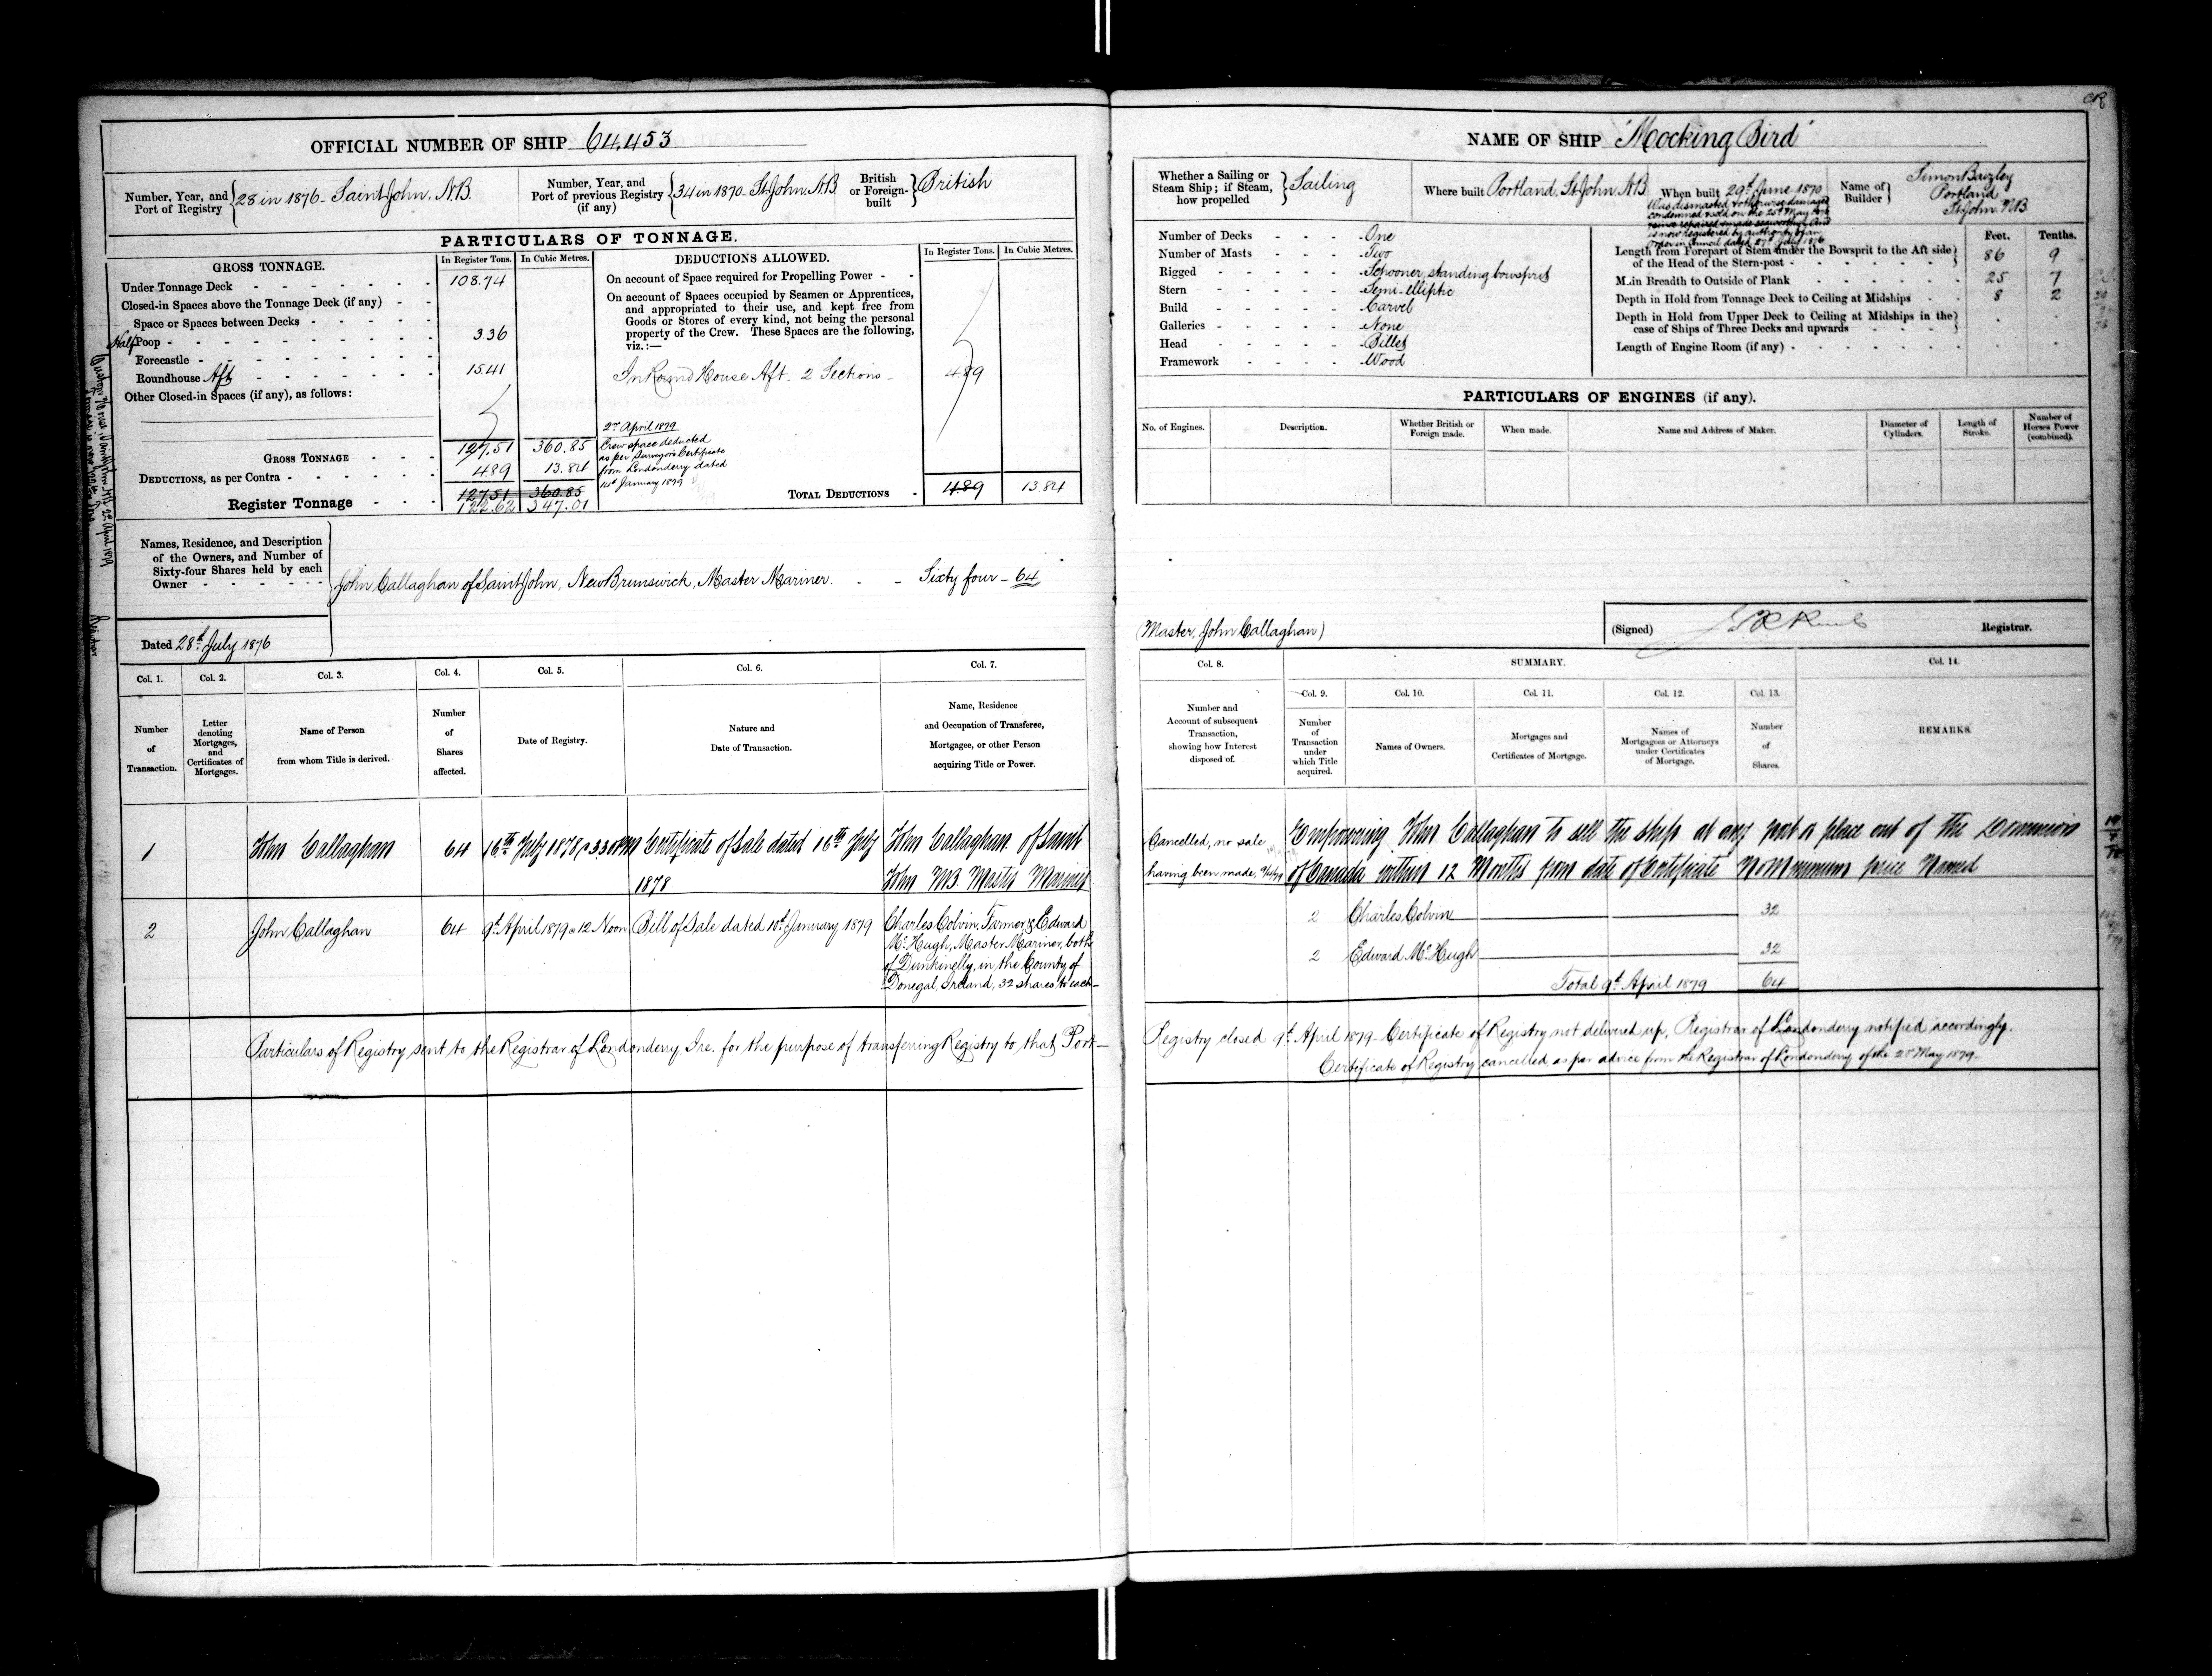 CR
OFFICIAL NUMBER OF SHIP 64,453
Number, Year, and Port of Registry { 28 in 1876 - Saint John, N.B.
Number, Year, and Port of previous Registry (if any) { 34 in 1870 - St John N.B.
British or Foreign-built } British
PARTICULARS OF TONNAGE.
GROSS TONNAGE. In Register Tons. In Cubic Metres.
Under Tonnage Deck 108.74
Closed-in Spaces above the Tonnage Deck (if any)
Space or Spaces between Decks
Half Poop 3.36
Forecastle
Roundhouse Aft 15.41
Other Closed-in Spaces (if any), as follows:
GROSS TONNAGE 127.51 360.85
DEDUCTIONS, as per Contra 4.89 13.84
Register Tonnage 127.51 360.85
122.62 347.01
DEDUCTIONS ALLOWED. In Register Tons. In Cubic Metres.
On account of Space required for Propelling Power
On account of Spaces occupied by Seamen or Apprentices,
and appropriated to their use, and kept free from
Goods or Stores of every kind, not being the personal
property of the Crew. These Spaces are the following,
viz.:—
In Round House Aft - 2 Sections - 4.89
2nd April 1879
Crew space deducted
as per Surveyor's Certificate
from Londonderry dated
14th January 1879
TOTAL DEDUCTIONS 4.89 13.84
Names, Residence, and Description
of the Owners, and Number of
Sixty-four Shares held by each
Owner
John Callaghan of Saint John, New Brunswick, Master Mariner. - - Sixty four - 64
Dated 28th July 1876
NAME OF SHIP "Mocking Bird"
Whether a Sailing or Steam Ship; if Steam, how propelled } Sailing
Where built Portland, St John, N.B
When built 29th June 1870
Was dismasted & otherwise damaged
condemned & sold on the 25th May
since repaired & made seaworthy and
is now registered by authority of an
order in Council dated 27th July 1876
Name of Builder } Simon Baizley
Portland
St John N.B
Number of Decks - One
Number of Masts - Two
Rigged - Schooner, standing bowsprit
Stern - Semi-elliptic
Build - Carvel
Galleries - None
Head - Billet
Framework - Wood
Feet. Tenths.
Length from Forepart of Stem under the Bowsprit to the Aft side of the Head of the Stern-post 86 9
Main Breadth to Outside of Plank 25 7
Depth in Hold from Tonnage Deck to Ceiling at Midships 8 2
Depth in Hold from Upper Deck to Ceiling at Midships in the case of Ships of Three Decks and upwards
Length of Engine Room (if any)
PARTICULARS OF ENGINES (if any).
No. of Engines. Description. Whether British or Foreign made. When made. Name and Address of Maker. Diameter of Cylinders. Length of Stroke. Number of Horses Power (combined).
(Master, John Callaghan)
(Signed) Registrar.
Col. 1. Col. 2. Col. 3. Col. 4. Col. 5. Col. 6. Col. 7.
Number of Transaction.
Letter denoting Mortgages, and Certificates of Mortgages.
Name of Person from whom Title is derived.
Number of Shares affected.
Date of Registry.
Nature and Date of Transaction.
Name, Residence and Occupation of Transferee, Mortgagee, or other Person acquiring Title or Power.
1 John Callaghan 64 16th July 1878, 3.30 PM Certificate of Sale dated 16th July 1878 John Callaghan of Saint John N.B. Master Mariner
2 John Callaghan 64 9th April 1879 @ 12 Noon Bill of Sale dated 10th January 1879 Charles Colvin, Farmer, & Edward
McHugh, Master Mariner, both
of Dunkinelly, in the County of
Donegal, Ireland, 32 shares to each
Particulars of Registry sent to the Registrar of Londonderry, Ire. for the purpose of transferring Registry to that Port
Col. 8. SUMMARY. Col. 14.
Col. 9. Col. 10. Col. 11. Col. 12. Col. 13.
Number and Account of subsequent Transaction, showing how Interest disposed of.
Number of Transaction under which Title acquired.
Names of Owners.
Mortgages and Certificates of Mortgage.
Names of Mortgagees or Attorneys under Certificates of Mortgage.
Number of Shares.
REMARKS.
Cancelled, no sale
having been made, 9/4/79
Empowering John Callaghan to sell the ship at any port or place out of the Dominion
of Canada within 12 Months from date of Certificate No Minimum price Named
2 Charles Colvin 32
2 Edward McHugh 32
Total 9th April 1879 64
Registry closed 9th April 1879 - Certificate of Registry not delivered up, Registrar of Londonderry notified accordingly.
Certificate of Registry cancelled, as per advice from the Registrar of Londonderry of the 2nd May 1879